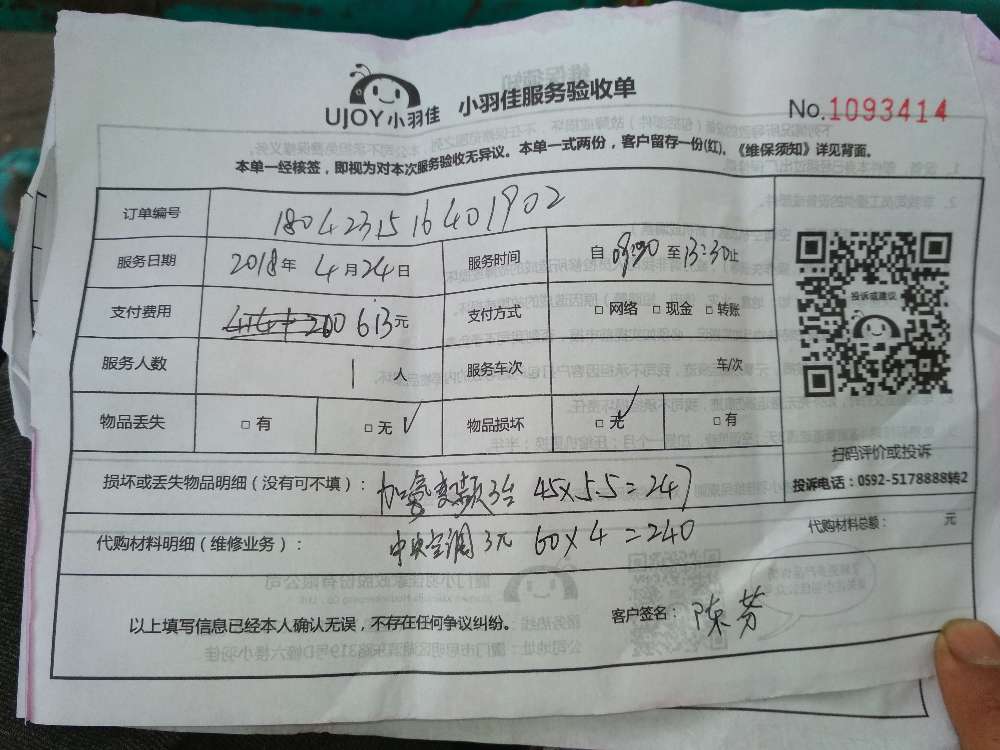 UJOY小羽佳 小羽佳服务验收单
No.1093414
本单一经核签，即视为对本次服务验收无异议。本单一式两份，客户留存一份(红)。《维保须知》详见背面。
订单编号 1804231516401902
服务日期 2018年 4月24日 服务时间 自 09:00 至 13:30止
支付费用 613元 支付方式 □ 网络 □ 现金 □ 转账
服务人数 1 人 服务车次 车/次
物品丢失 □ 有 □ 无 √ 物品损坏 □ 无 √ □ 有
投诉或建议
扫码评价或投诉
投诉电话：0592-5178888转2
损坏或丢失物品明细（没有可不填）： 加氟 3台 45×5.5=247
代购材料明细（维修业务）： 中央空调3元 60×4=240
代购材料总额： 元
以上填写信息已经本人确认无误，不存在任何争议纠纷。
客户签名： 陈芳